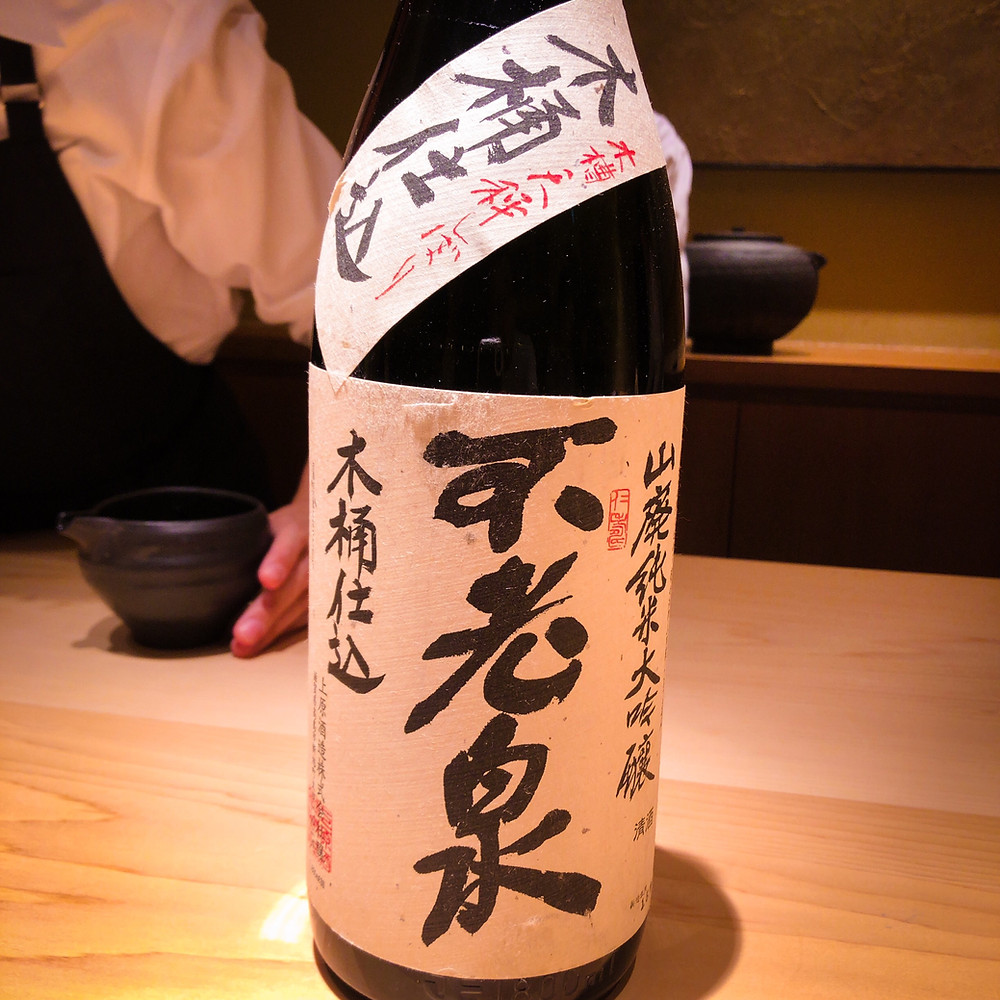 木桶仕込
木槽天秤しぼり
山廃純米大吟醸
清酒
不老泉
木桶仕込
上原酒造株式